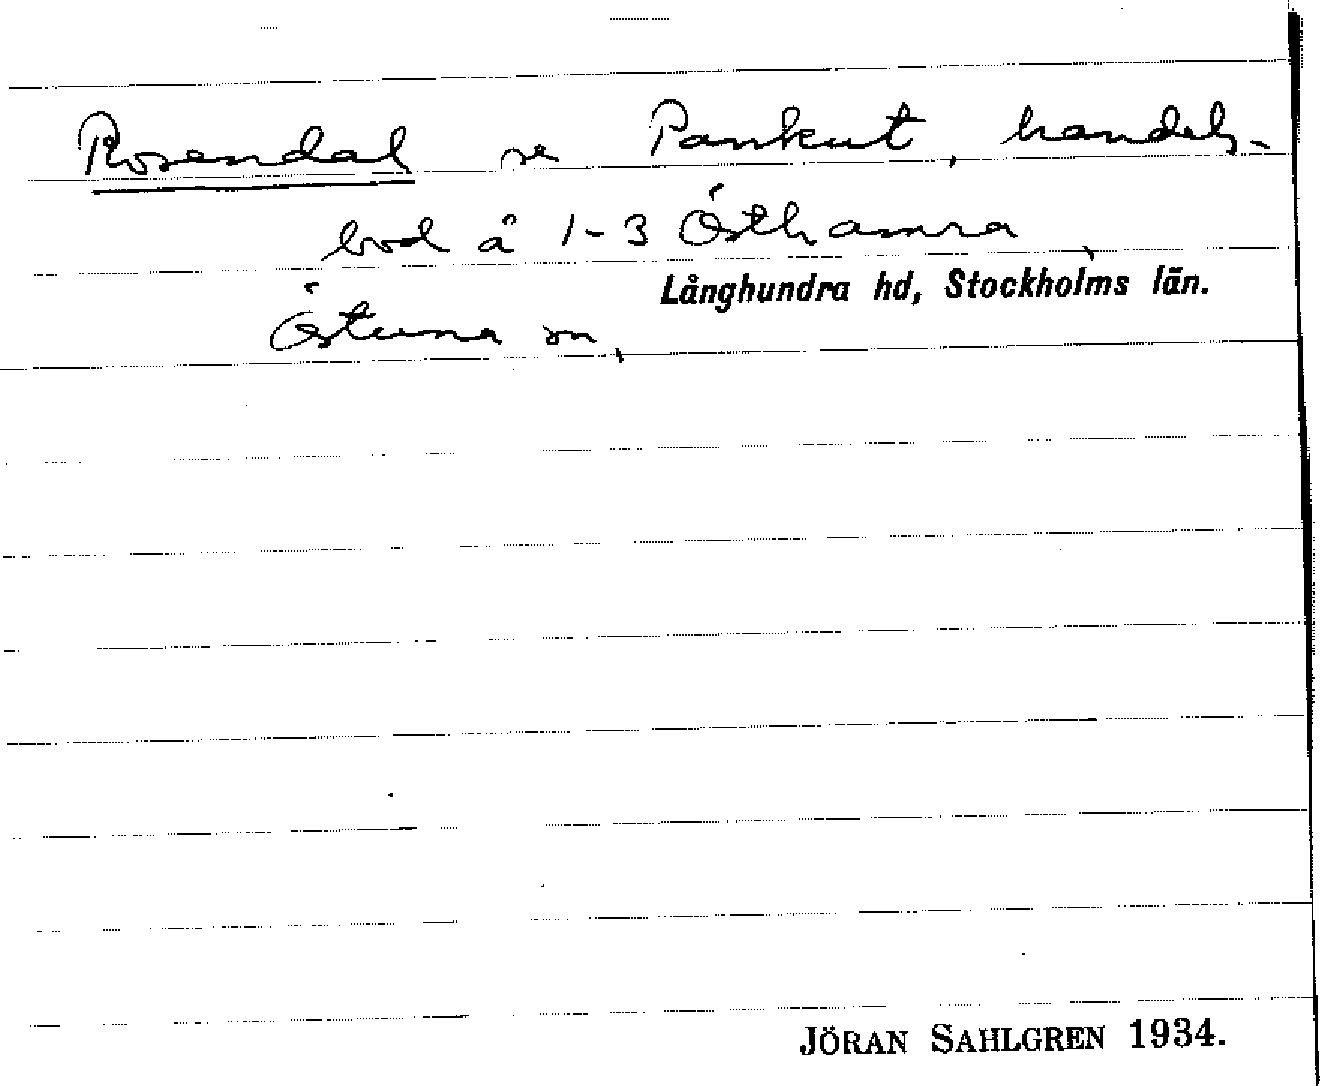 Rosendal se Pankut, handels-
bod å 1-3 Östhamra,
Långhundra hd, Stockholms län.
Östuna sn,
JÖRAN SAHLGREN 1934.